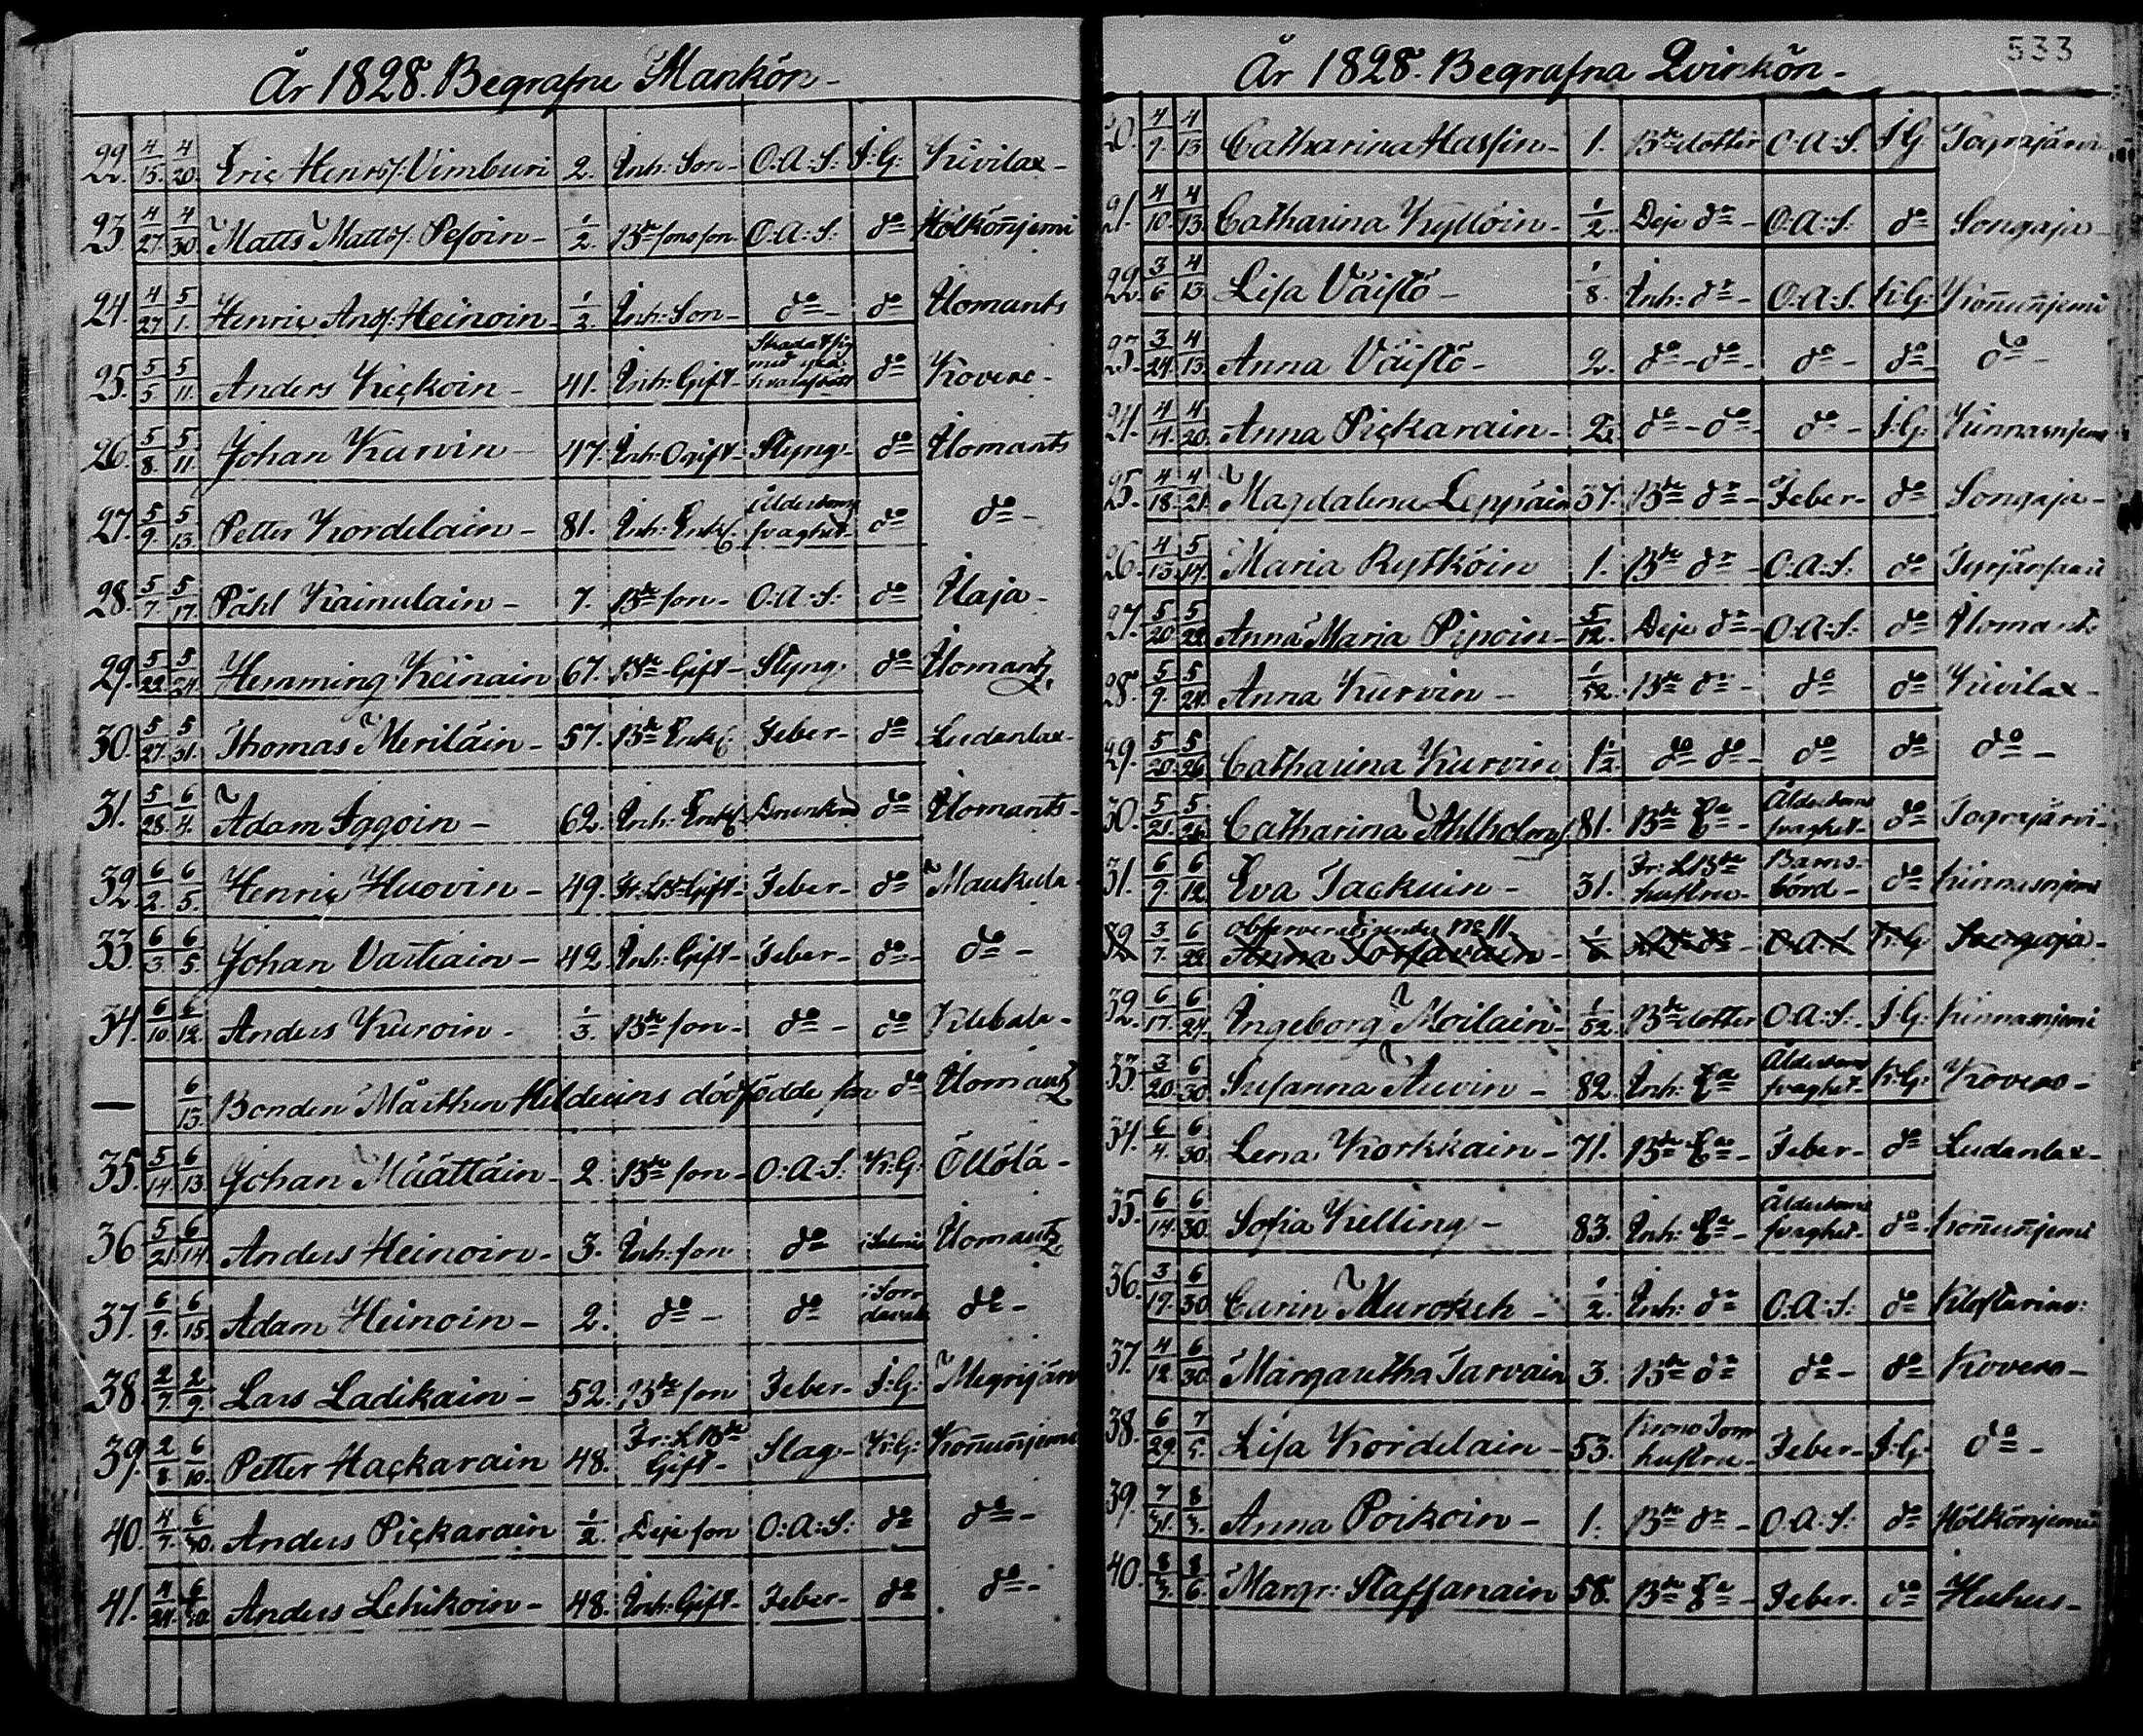 År 1828. Begrafne Mankön -
22. 4/15. 4/20. Eric Henrs: Vimburi 2. Inh: Son - O: A: S: I: G: Kivilax -
23 4/27. 4/30 Matts Matts: Pesoin - 1/2. Bde sons son - O: A: S: do Hölkönjemi
24. 4/27 5/1. Henric Ands: Heinoin 1/2. Inh: Son - do - do Ilomants
25. 5/5. 5/11. Anders Kickoin - 41. Inh: Gift - Skadat sig med do Kovero -
26. 5/8. 5/11. Johan Kurvin - 47. Inh: Ogift - Styng - do Ilomants
27. 5/9. 5/13. Petter Kordelain - 81. Inh: Enkl. Ålderdoms svaghet - do do -
28. 5/7. 5/17. Påhl Kainulain - 7. Bde son - O: A: S: do Ilaja -
29. 5/22. 5/24. Hemming Keinain 67. Bde Gift - Styng. do Ilomantz,
30. 5/27. 5/31. Thomas Meriläin - 57. Bde Enkl Feber - do Ludanlax -
31. 5/28. 6/4. Adam Iggoin - 62. Inh: Enkl. Drunknad do Ilomants -
32. 6/2. 6/5. Henric Huovin - 49. Fr: L Bde Gift - Feber - do Maukula -
33. 6/3. 6/5. Johan Vastiain - 42. Inh: Gift - Feber - do - do -
34. 6/10. 6/12. Anders Kuroin - 1/3. Bde son - do - do
— 6/13. Bonden Mårthen Hildeins dödfödde son do Ilomantz
35. 5/14. 6/13. Johan Määttäin - 2. Bde son - O: A: S. K: G: Öllölä -
36 5/21. 6/14. Anders Heinoin - 3. Inh: son do Ilomantz
37. 6/9. 6/15. Adam Heinoin - 2. do - do i Sordavala do -
38. 2/7. 2/9. Lars Ladikain - 52. Bde son Feber - I: G: Megrijärvi
39. 2/8. 6/10. Petter Hackarain 48. Fr: L Bde Gift - Slag - K: G: Koñuñjemi
40. 4/7. 6/30. Anders Pickarain 1/2. Deje son O: A: S: do do -
41. 4/24. 6/30. Anders Lehikoin - 48. Inh: Gift - Feber - do do -
533
År 1828. Begrafna Qvinkön -
20. 4/9. 4/13 Catharina Hassin - 1. Bde dotter O: A: S. I: G: Sograjärvi
21. 4/10. 4/13. Catharina Kyllöin - 1/2. Deje do - O: A: S: do Songaja -
22. 3/6 4/13. Lisa Väistö - 1/8. Inh: do - O: A: S. K: G: Koñuñjemi
23. 3/24. 4/13. Anna Väistö - 2. do - do - do - do - do -
24. 4/14. 4/20. Anna Pickarain - 2. do - do - do - I: G: Kinnasnjemi
25. 4/18. 4/21. Magdalena Leppäin 37. Bde do - Feber - do Songaja -
26. 4/13. 5/14. Maria Rytköin 1. Bde do - O: A: S. do
27. 5/20. 5/22. Anna Maria Piipoin - 5/12. Deje do - O: A: S: do Ilomants
28. 5/9. 5/24. Anna Kurvin - 1/52. Bde do - do do Kivilax -
29. 5/20. 5/26. Catharina Kurvin 1 1/2. do do - do do do -
30. 5/21. 5/26. Catharina Ahlholm 81. Bde Ea - Ålderdoms svaghet - do Sograjärvi -
31. 6/9. 6/12. Eva Tackuin - 31. Fr: L Bde hustru - Barnsbörd - do Kinnasnjemi
32 3/7. 6/22. observera No 11. Anna O: A: S. K: G: Songaja -
32. 6/17. 6/24. Ingeborg Moilain - 1/52. Bde dotter O: A: S. I: G: Kinnasnjemi
33. 3/20. 6/30. Susanna Auvin - 82. Inh: Ea Ålderdoms svaghet - K: G: Kovero -
34. 6/4. 6/30. Lena Korkkain - 71. Bde Ea - Feber - do Ludanlax -
35. 6/14. 6/30. Sofia Kelling - 83. Inh: Ea - Ålderdoms svaghet - do - Koñuñjemi
36. 3/19. 6/30. Carin Muroksh - 1/2. Inh: do O: A: S: do
37. 4/12. 6/30. Margaretha Tarvain 3. Bde do do - do Kovero -
38. 6/29. 7/5. Lisa Kordelain - 53. Krono Torp hustru - Feber - I: G: do -
39. 7/31. 8/3. Anna Poikoin - 1. Bde do - O: A: S: do Hölkönjemi
40. 8/3. 8/6. Margr: Staffanain 58. Bde Ea - Feber. do Huhus -